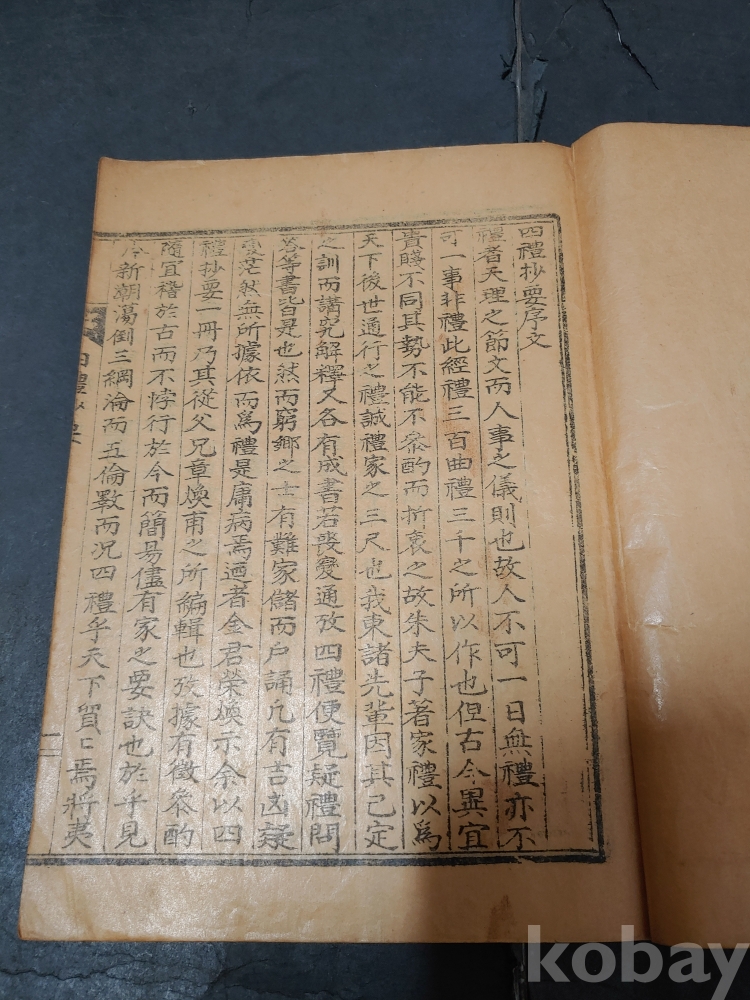 四禮抄要序文
禮者天理之節文而人事之儀則也故人不可一日無禮亦不
可一事非禮此經禮三百曲禮三千之所以作也但古今異宜
貴賤不同其勢不能不叅酌而折衷之故朱夫子著家禮以爲
天下後世通行之禮誠禮家之三尺也我東諸先輩因其已定
之訓而講究解釋又各有成書若喪變通攷四禮便覽疑禮問
答等書皆是也然而窮鄕之士有難家儲而戶誦凡有吉凶疑
變茫然無所據依而爲禮是庸病焉迺者金君榮煥示余以四
禮抄要一冊乃其從父兄章煥甫之所編輯也攷據有徵叅酌
隨宜稽於古而不悖行於今而簡易儘有家之要訣也於乎見
今新朝蕩倒三綱淪而五倫斁而況四禮乎天下貿〻焉將夷
四禮抄要
一
kobay